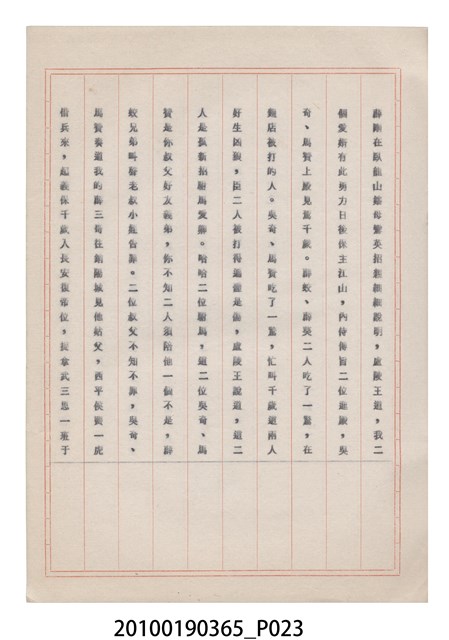 薛斯在臥龍山鎮母寨英招親細細說明，盧陵王道，我二
個愛斯有此勇力日後保主江山，內侍傳旨二位進殿，吳
奇、馬贊上殿見駕千歲。薛蛟、薛葵二人吃了一驚，在
飯店被打的人。吳奇、馬贊吃了一驚，忙叫千歲這兩人
好生凶狠，臣二人被打得遍體是傷，盧陵王說道，這二
人是孤新招駙馬愛斯。哈哈二位駙馬，這二位吳奇、馬
贊是你叔父好友義弟，你不知二人須陪他一個不是，薛
蛟兄弟叫聲老叔小姪告罪。二位叔父不知不罪，吳奇、
馬贊奏道我的薛三哥往漢陽城見他姑父，西平侯寅一虎
借兵來，起義保千歲入長安復帝位，捉拿武三思一班于